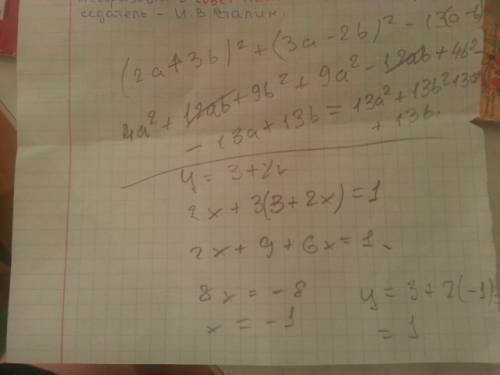 седатель - И.В. Сталин.
(2a+3b)² + (3a-2b)² - 13a-b
4a² + 12ab + 9b² + 9a² - 12ab + 4b²
- 13a + 13b = 13a² + 13b² 13a
+ 13b.
y = 3+2x
2x + 3(3+2x) = 1
2x + 9 + 6x = 1
8x = -8
x = -1
y = 3 + 2(-1)
= 1